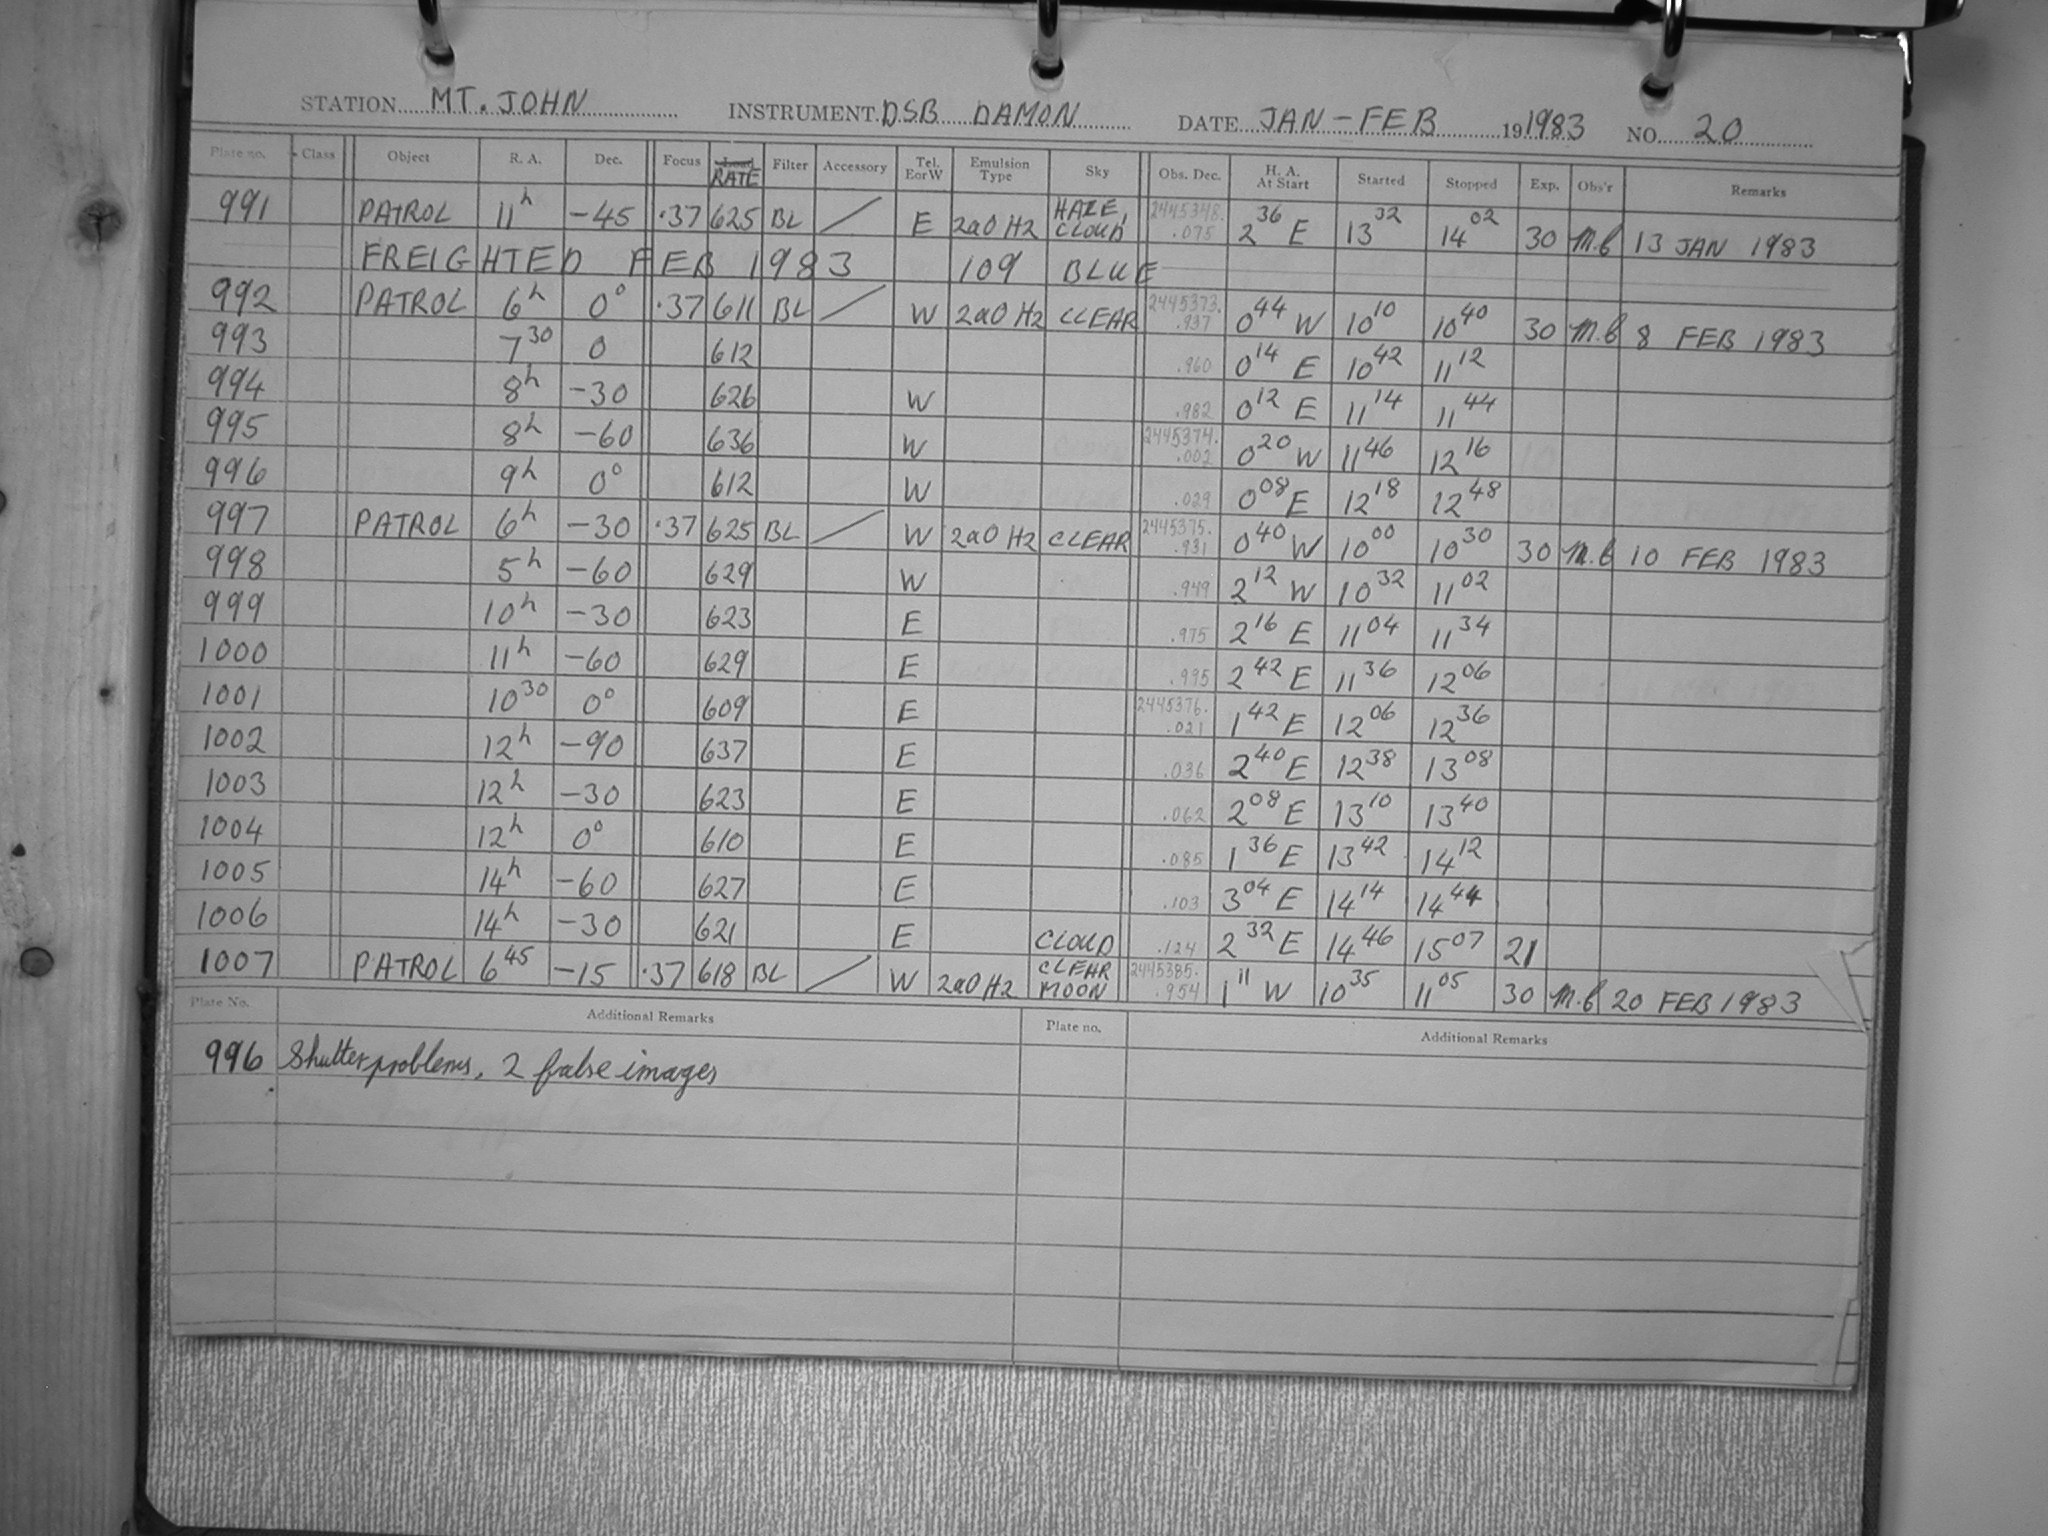 STATION MT. JOHN INSTRUMENT DSB DAMON DATE JAN-FEB 19 1983 NO. 20
Plate no. Class Object R. A. Dec. Focus RATE Filter Accessory Tel. E or W Emulsion Type Sky Obs. Dec. H. A. At Start Started Stopped Exp. Obs'r Remarks
991 PATROL 11h -45 .37 625 BL / E 2a0 H2 HAZE, CLOUD 2445348. .075 2 36 E 13 32 14 02 30 M.B 13 JAN 1983
FREIGHTED FEB 1983 109 BLUE
992 PATROL 6h 0° .37 611 BL / W 2a0 H2 CLEAR 2445373. .937 0 44 W 10 10 10 40 30 M.B 8 FEB 1983
993 7 30 0 612 .960 0 14 E 10 42 11 12
994 8h -30 626 W .982 0 12 E 11 14 11 44
995 8h -60 636 W 2445374. .002 0 20 W 11 46 12 16
996 9h 0° 612 W .029 0 08 E 12 18 12 48
997 PATROL 6h -30 .37 625 BL / W 2a0 H2 CLEAR 2445375. .931 0 40 W 10 00 10 30 30 M.B 10 FEB 1983
998 5h -60 629 W .949 2 12 W 10 32 11 02
999 10h -30 623 E .975 2 16 E 11 04 11 34
1000 11h -60 629 E .995 2 42 E 11 36 12 06
1001 10 30 0° 609 E 2445376. .021 1 42 E 12 06 12 36
1002 12h -90 637 E .036 2 40 E 12 38 13 08
1003 12h -30 623 E .062 2 08 E 13 10 13 40
1004 12h 0° 610 E .085 1 36 E 13 42 14 12
1005 14h -60 627 E .103 3 04 E 14 14 14 44
1006 14h -30 621 E CLOUD .124 2 32 E 14 46 15 07 21
1007 PATROL 6 45 -15 .37 618 BL / W 2a0 H2 CLEAR MOON 2445385. .954 1 11 W 10 35 11 05 30 M.B 20 FEB 1983
Plate No. Additional Remarks Plate no. Additional Remarks
996 Shutter problems, 2 false images